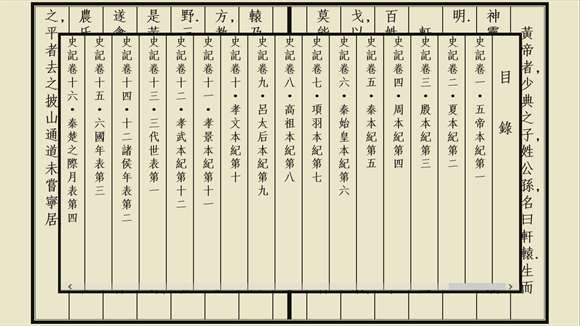 黃帝者，少典之子姓公孫，名曰軒轅．生而
神靈
明．
軒
百姓
戈，以
莫能
轅乃
方，教
野．三
是黃
遂禽
農氏
之，平者去之披山通道未嘗寧居
目錄
史記卷一•五帝本紀第一
史記卷二•夏本紀第二
史記卷三•殷本紀第三
史記卷四•周本紀第四
史記卷五•秦本紀第五
史記卷六•秦始皇本紀第六
史記卷七•項羽本紀第七
史記卷八•高祖本紀第八
史記卷九•呂太后本紀第九
史記卷十•孝文本紀第十
史記卷十一•孝景本紀第十一
史記卷十二•孝武本紀第十二
史記卷十三•三代世表第一
史記卷十四•十二諸侯年表第二
史記卷十五•六國年表第三
史記卷十六•秦楚之際月表第四